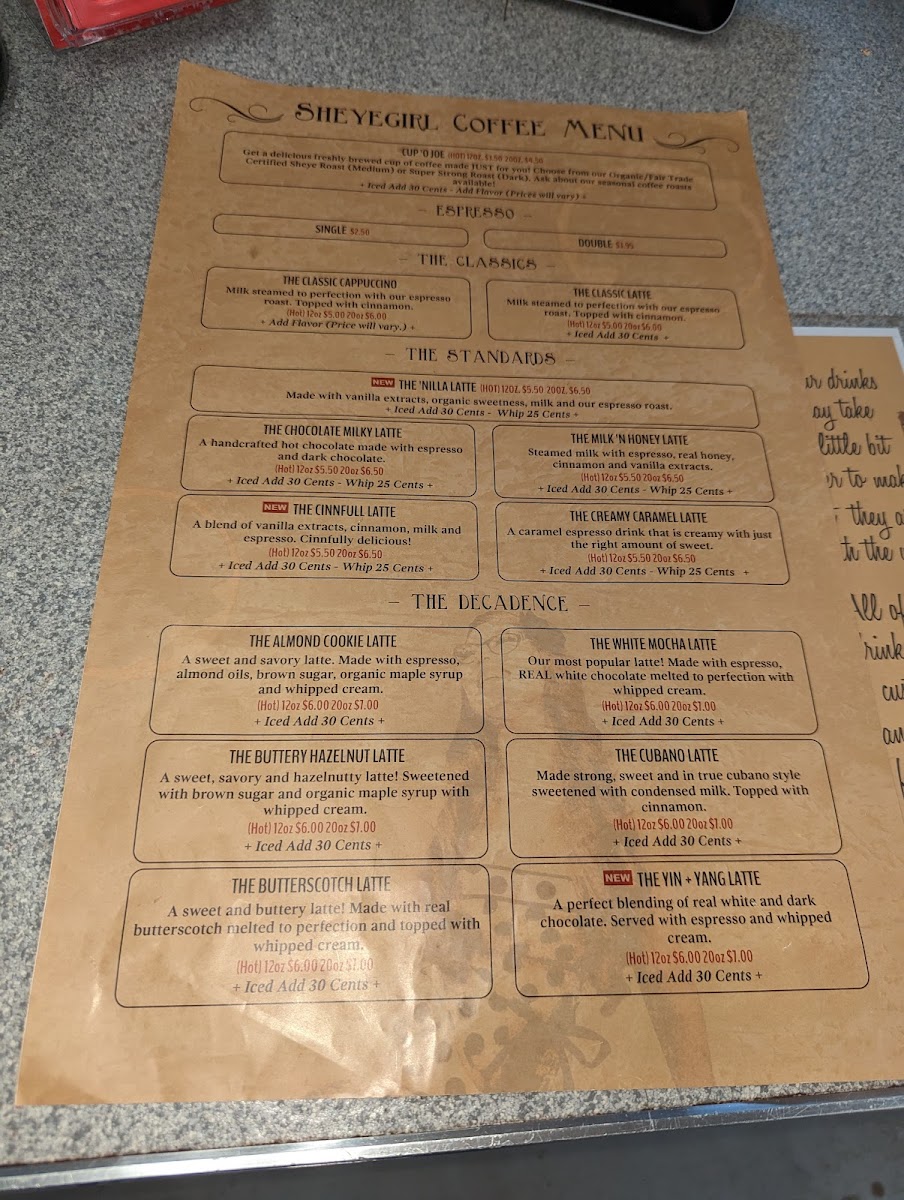 SHEYEGIRL COFFEE MENU
CUP 'O JOE (HOT) 12OZ. $3.50 20OZ. $4.50
Get a delicious freshly brewed cup of coffee made JUST for you! Choose from our Organic/Fair Trade
Certified Sheye Roast (Medium) or Super Strong Roast (Dark). Ask about our seasonal coffee roasts
available!
+ Iced Add 30 Cents - Add Flavor (Prices will vary) +
- ESPRESSO -
SINGLE $2.50
DOUBLE $3.95
- THE CLASSICS -
THE CLASSIC CAPPUCCINO
Milk steamed to perfection with our espresso
roast. Topped with cinnamon.
(Hot) 12oz $5.00 20oz $6.00
+ Add Flavor (Price will vary.) +
THE CLASSIC LATTE
Milk steamed to perfection with our espresso
roast. Topped with cinnamon.
(Hot) 12oz $5.00 20oz $6.00
+ Iced Add 30 Cents +
- THE STANDARDS -
NEW THE 'NILLA LATTE (HOT) 12OZ. $5.50 20OZ. $6.50
Made with vanilla extracts, organic sweetness, milk and our espresso roast.
+ Iced Add 30 Cents - Whip 25 Cents +
THE CHOCOLATE MILKY LATTE
A handcrafted hot chocolate made with espresso
and dark chocolate.
(Hot) 12oz $5.50 20oz $6.50
+ Iced Add 30 Cents - Whip 25 Cents +
THE MILK 'N HONEY LATTE
Steamed milk with espresso, real honey,
cinnamon and vanilla extracts.
(Hot) 12oz $5.50 20oz $6.50
+ Iced Add 30 Cents - Whip 25 Cents +
NEW THE CINNFULL LATTE
A blend of vanilla extracts, cinnamon, milk and
espresso. Cinnfully delicious!
(Hot) 12oz $5.50 20oz $6.50
+ Iced Add 30 Cents - Whip 25 Cents +
THE CREAMY CARAMEL LATTE
A caramel espresso drink that is creamy with just
the right amount of sweet.
(Hot) 12oz $5.50 20oz $6.50
+ Iced Add 30 Cents - Whip 25 Cents +
- THE DECADENCE -
THE ALMOND COOKIE LATTE
A sweet and savory latte. Made with espresso,
almond oils, brown sugar, organic maple syrup
and whipped cream.
(Hot) 12oz $6.00 20oz $7.00
+ Iced Add 30 Cents +
THE WHITE MOCHA LATTE
Our most popular latte! Made with espresso,
REAL white chocolate melted to perfection with
whipped cream.
(Hot) 12oz $6.00 20oz $7.00
+ Iced Add 30 Cents +
THE BUTTERY HAZELNUT LATTE
A sweet, savory and hazelnutty latte! Sweetened
with brown sugar and organic maple syrup with
whipped cream.
(Hot) 12oz $6.00 20oz $7.00
+ Iced Add 30 Cents +
THE CUBANO LATTE
Made strong, sweet and in true cubano style
sweetened with condensed milk. Topped with
cinnamon.
(Hot) 12oz $6.00 20oz $7.00
+ Iced Add 30 Cents +
THE BUTTERSCOTCH LATTE
A sweet and buttery latte! Made with real
butterscotch melted to perfection and topped with
whipped cream.
(Hot) 12oz $6.00 20oz $7.00
+ Iced Add 30 Cents +
NEW THE YIN + YANG LATTE
A perfect blending of real white and dark
chocolate. Served with espresso and whipped
cream.
(Hot) 12oz $6.00 20oz $7.00
+ Iced Add 30 Cents +
drinks
take
little bit
to
they
the
All